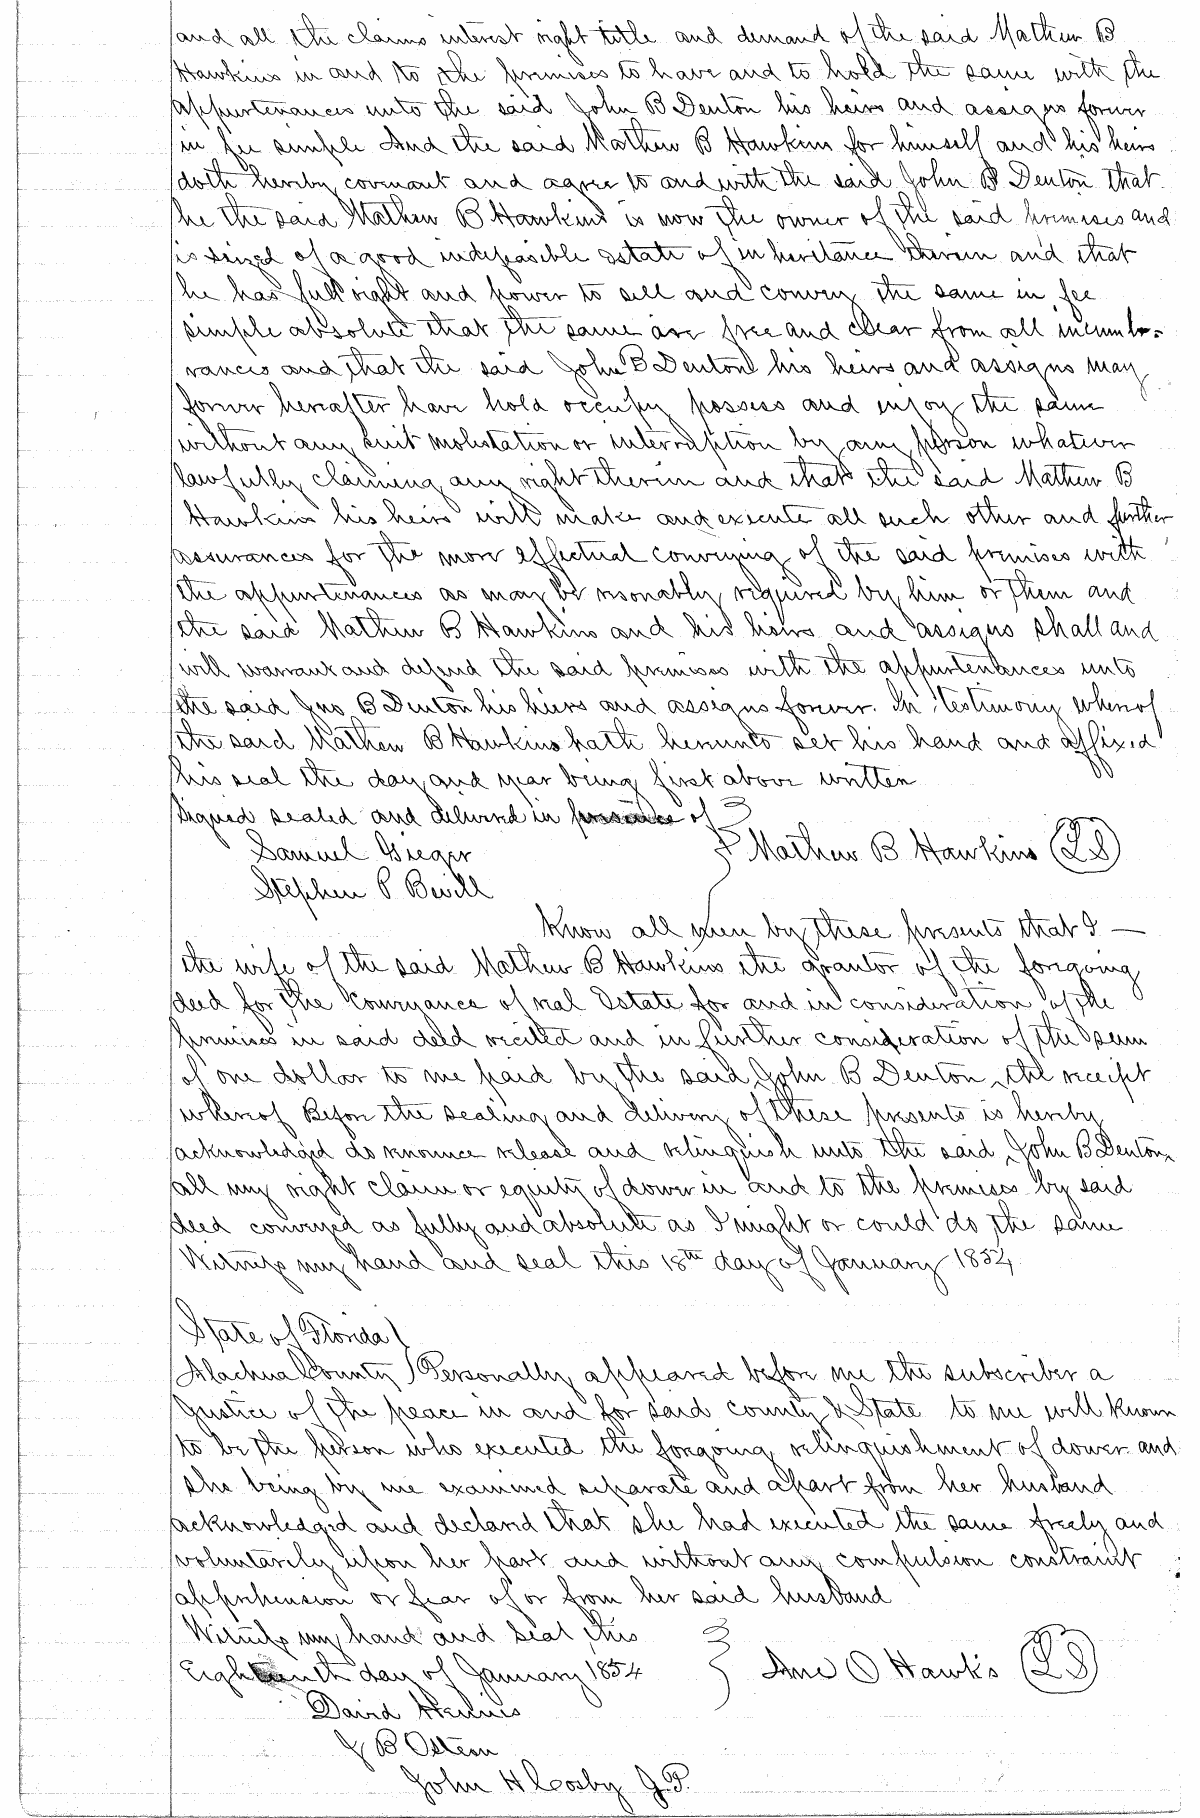 and all the claims interest right title and demand of the said Mathew B
Hawkins in and to the premises to have and to hold the same with the
appurtenances unto the said John B Denton his heirs and assigns forever
in fee simple And the said Mathew B Hawkins for himself and his heirs
doth hereby covenant and agree to and with the said John B Denton that
he the said Mathew B Hawkins is now the owner of the said premises and
is seized of a good indefeasible estate of inheritance therein and that
he has full right and power to sell and convey the same in fee
simple absolute that the same are free and clear from all incumb=
rances and that the said John B Denton his heirs and assigns may
forever hereafter have hold occupy possess and enjoy the same
without any suit molestation or interruption by any person whatever
lawfully claiming any right therein and that the said Mathew B
Hawkins his heirs will make and execute all such other and further
assurances for the more effectual conveying of the said premises with
the appurtenances as may be resonably required by him or them and
the said Mathew B Hawkins and his heirs and assigns shall and
will warrant and defend the said premises with the appurtenances unto
the said Jno B Denton his heirs and assigns forever. In testimony whereof
the said Mathew B Hawkins hath hereunto set his hand and affixed
his seal the day and year being first above written
Signed sealed and delivered in presence of
Samuel Gieger
Mathew B Hawkins (LS)
Stephen P Bevill
Know all men by these presents that I —
the wife of the said Mathew B Hawkins the grantor of the foregoing
deed for the conveyance of real Estate for and in consideration of the
premises in said deed recited and in further consideration of the sum
of one dollar to me paid by the said John B Denton the receipt
whereof Before the sealing and delivery of these presents is hereby
acknowledged do renounce release and relinquish unto the said John B Denton
all my right claim or equity of dower in and to the premises by said
deed conveyed as fully and absolute as I might or could do the same
Witness my hand and seal this 18th day of January 1854
State of Florida
Alachua County Personally appeared before me the subscriber a
Justice of the peace in and for said county & State to me well known
to be the person who executed the foregoing relinquishment of dower and
she being by me examined separate and apart from her husband
acknowledged and declared that she had executed the same freely and
voluntarily upon her part and without any compulsion constraint
apprehension or fear of or from her said husband
Witness my hand and seal this
Eighteenth day of January 1854
Ann O Hawks (LS)
David
J B Osteen
John H Cosby J.P.